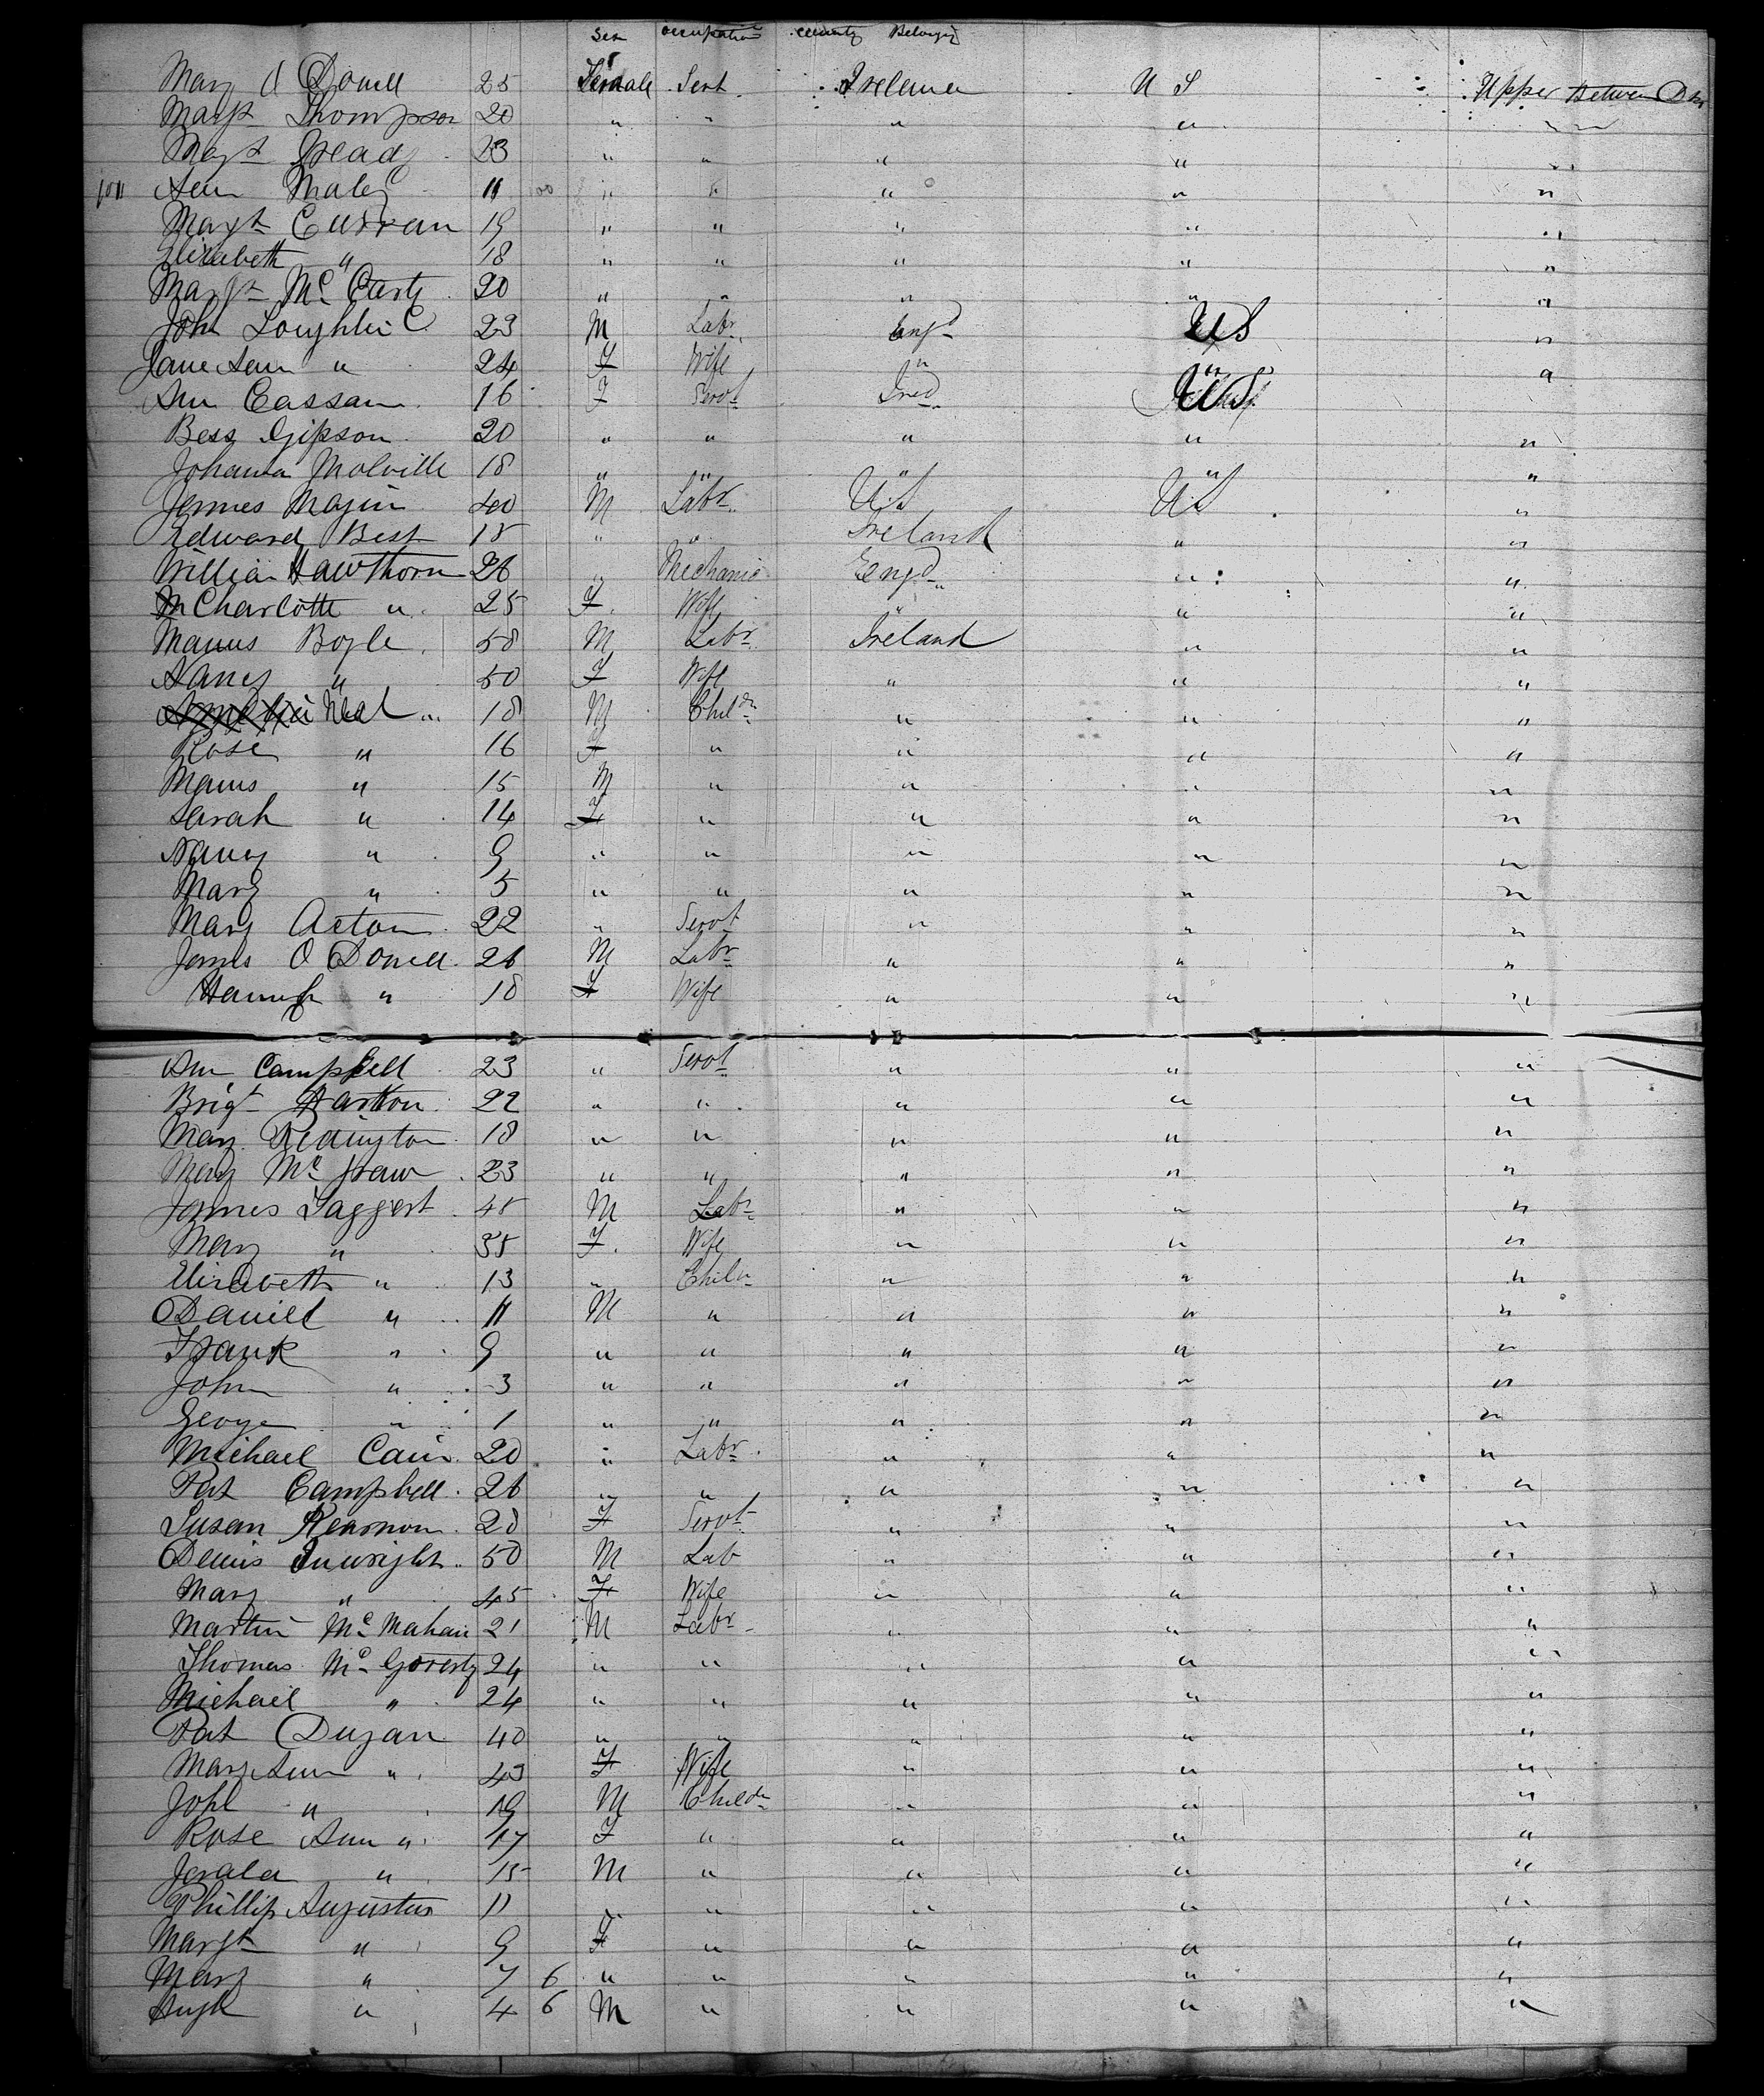 Sex occupation country Belonging
Mary O Donell 25 Female Sert Ireland U S Upper Between Dks
Margt Thompson 20 " " " " "
Margt Gready 23 " " " " "
Ann Maley 11 " " " " "
Margt Curran 19 " " " " "
Elizabeth " 18 " " " " "
Margt Mc Carty 20 " " " " "
John Loughlin 23 M Labr Engd US "
Jane Ann " 24 F Wife " " "
Ann Cassam 16 F Servt Ired US
Bess Gipson 20 " " " " "
Johanna Molville 18 " " " " "
James Magin 40 M Labr U.S U.S "
Edward Best 18 " " Ireland " "
William Hawthorn 26 " Mechanic Engd " "
Charlotte " 25 F Wife " " "
Manus Boyle 58 M Labr Ireland " "
Nancy " 50 F Wife " " "
Neal " 18 M Childn " " "
Rose " 16 F " " " "
Manus " 15 M " " " "
Sarah " 14 F " " " "
Nancy " 9 " " " " "
Mary " 5 " " " " "
Mary Acton 22 " Servt " " "
James O Donell 26 M Labr " " "
Hannah " 18 F Wife " " "
Ann Campbell 23 " Servt " " "
Brigt Harkon 22 " " " " "
Mary Redington 18 " " " " "
Mary Mc Graw 23 " " " " "
James Taggert 45 M Labr " " "
Mary " 35 F Wife " " "
Elizabeth " 13 " Childn " " "
Daniel " 11 M " " " "
Frank " 9 " " " " "
John " 3 " " " " "
George " 1 " " " " "
Michael Cain 20 " Labr " " "
Pat Campbell 26 " " " " "
Susan Kearnon 20 F Servt " " "
Denis Inwright 50 M Lab " " "
Mary " 45 F Wife " " "
Martin Mc Mahan 21 M Labr " " "
Thomas Mc Goverty 24 " " " " "
Michael " 24 " " " " "
Pat Dugan 40 " " " " "
Mary Ann " 43 F Wife " " "
Johl " 19 M Childn " " "
Rose Ann " 17 F " " " "
Jerala " 15 M " " " "
Phillip Augustus 11 " " " " "
Margt " 9 F " " " "
Mary " 7 6 " " " " "
Hugh " 4 6 M " " " "